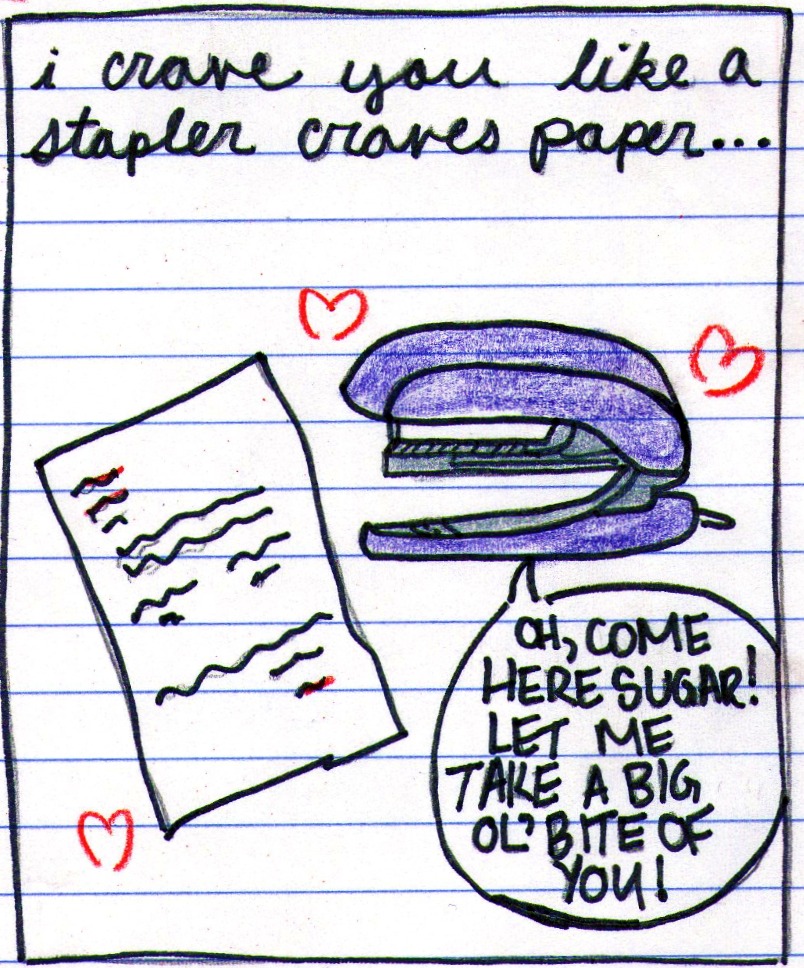 i crave you like a
stapler craves paper...
OH, COME
HERE SUGAR!
LET ME
TAKE A BIG
OL' BITE OF
YOU!